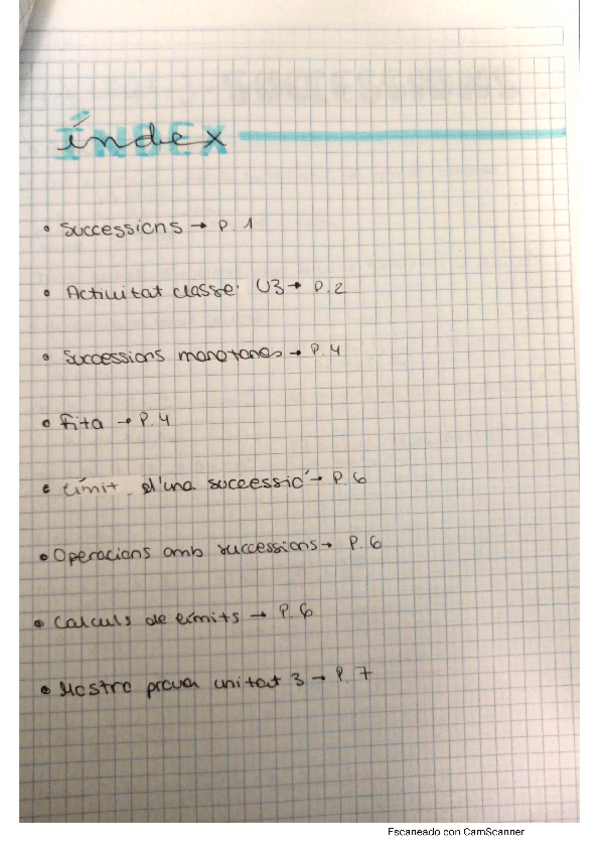 índex
• Successions → P. 1
• Activitat classe. U3 → P. 2
• Successions monotones → P. 4
• Fita → P. 4
• Límit d'una successió → P. 6
• Operacions amb successions → P. 6
• Calculs de límits → P. 6
• Mostra prova unitat 3 → P. 7
Escaneado con CamScanner